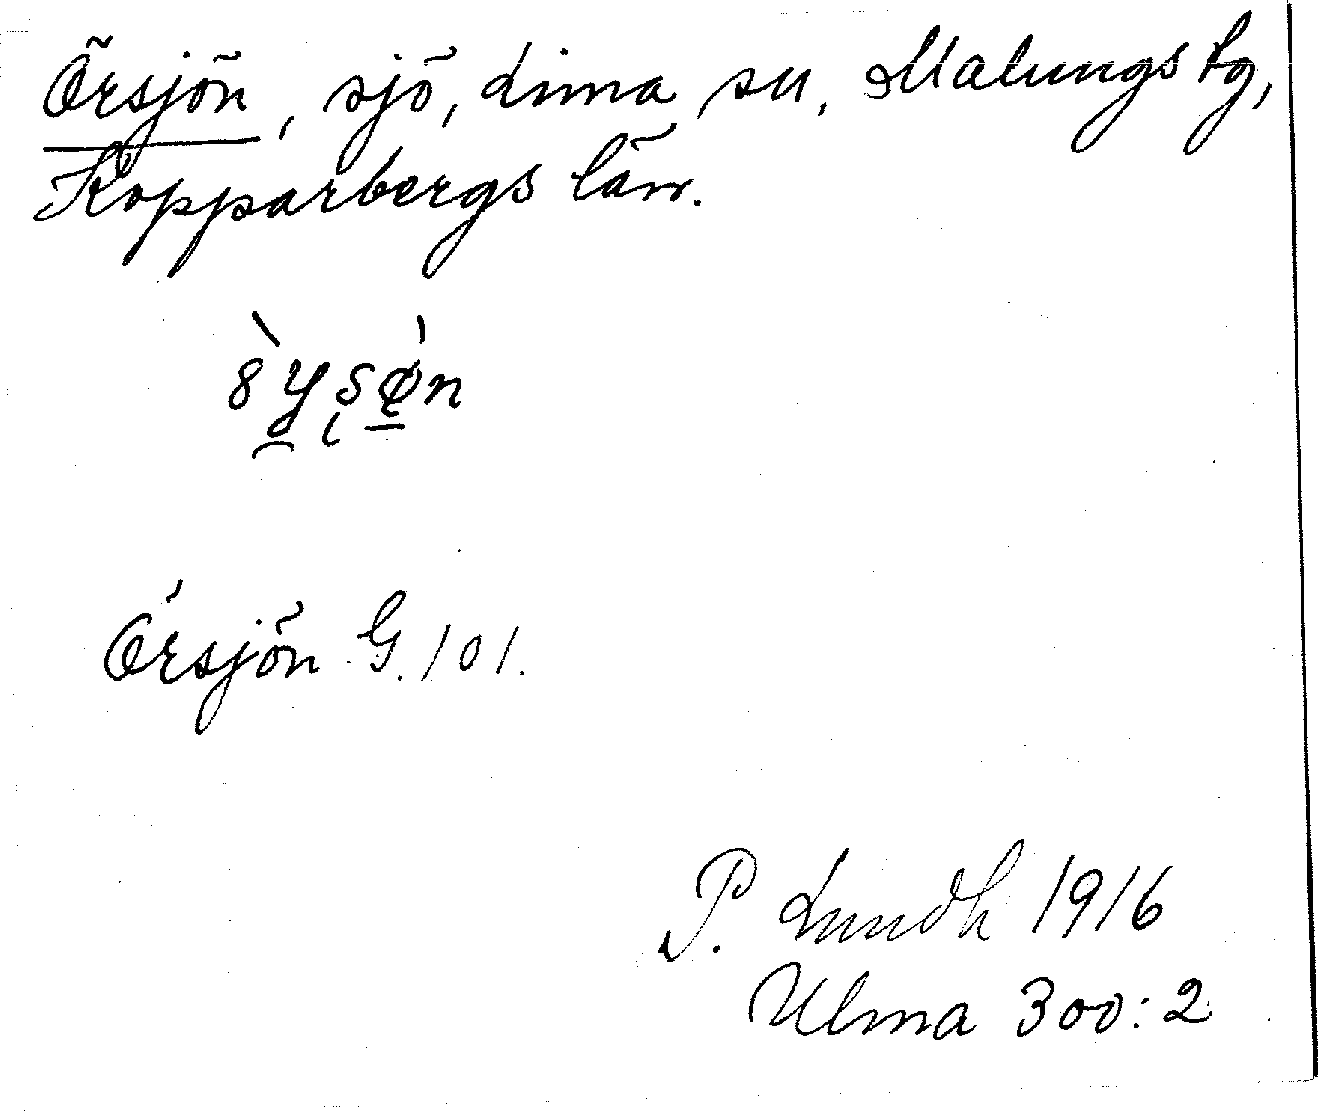 Örsjön, sjö, Lima sn, Malungs tg,
Kopparbergs län.
Örsjön G. 101.
P. Lundh 1916
Ulma 300:2